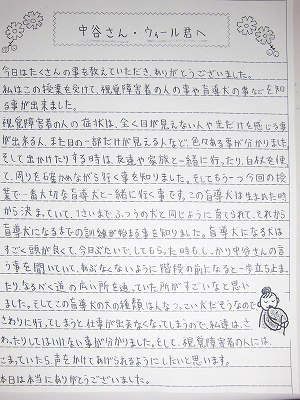 中谷さん・ウィール君へ
今日はたくさんの事を教えていただき、ありがとうございました。
私はこの授業を受けて、視覚障害者の人の事や盲導犬の事などを知
る事が出来ました。
視覚障害者の人の症状は、全く目が見えない人や光だけを感じる事
が出来る人、また目の一部だけが見える人など、色々ある事が分かりました。
そして出かけたりする時は、友達や家族と一緒に行ったり、白杖を使っ
て、周りを確かめながら行く事を知りました。そしてもう一つ今回の授
業で一番大切な盲導犬と一緒に行く事です。この盲導犬は生まれた時
から決まっていて、1さいまでふつうの犬と同じように育てられて、それから
盲導犬になるまでの訓練が始まる事を知りました。盲導犬になる犬は
すごく頭が良くて、今日ぶたいでしてもらった時も、しっかり中谷さんの言
う事を聞いていて、あぶなくないように階段の前になると一歩立ち止まっ
たり、なるべく道の広い所を通っていた所がすごいなと思い
ました。そしてこの盲導犬の犬の種類は人なつっこい犬だそうなので、
さわりに行ってしまうと仕事が出来なくなってしまうので、私達は、さ
わったりしてはいけない事が分かりました。そして、視覚障害者の人には、
こまっていたら、声をかけてあげられるようにしたいと思います。
本日は本当にありがとうございました。